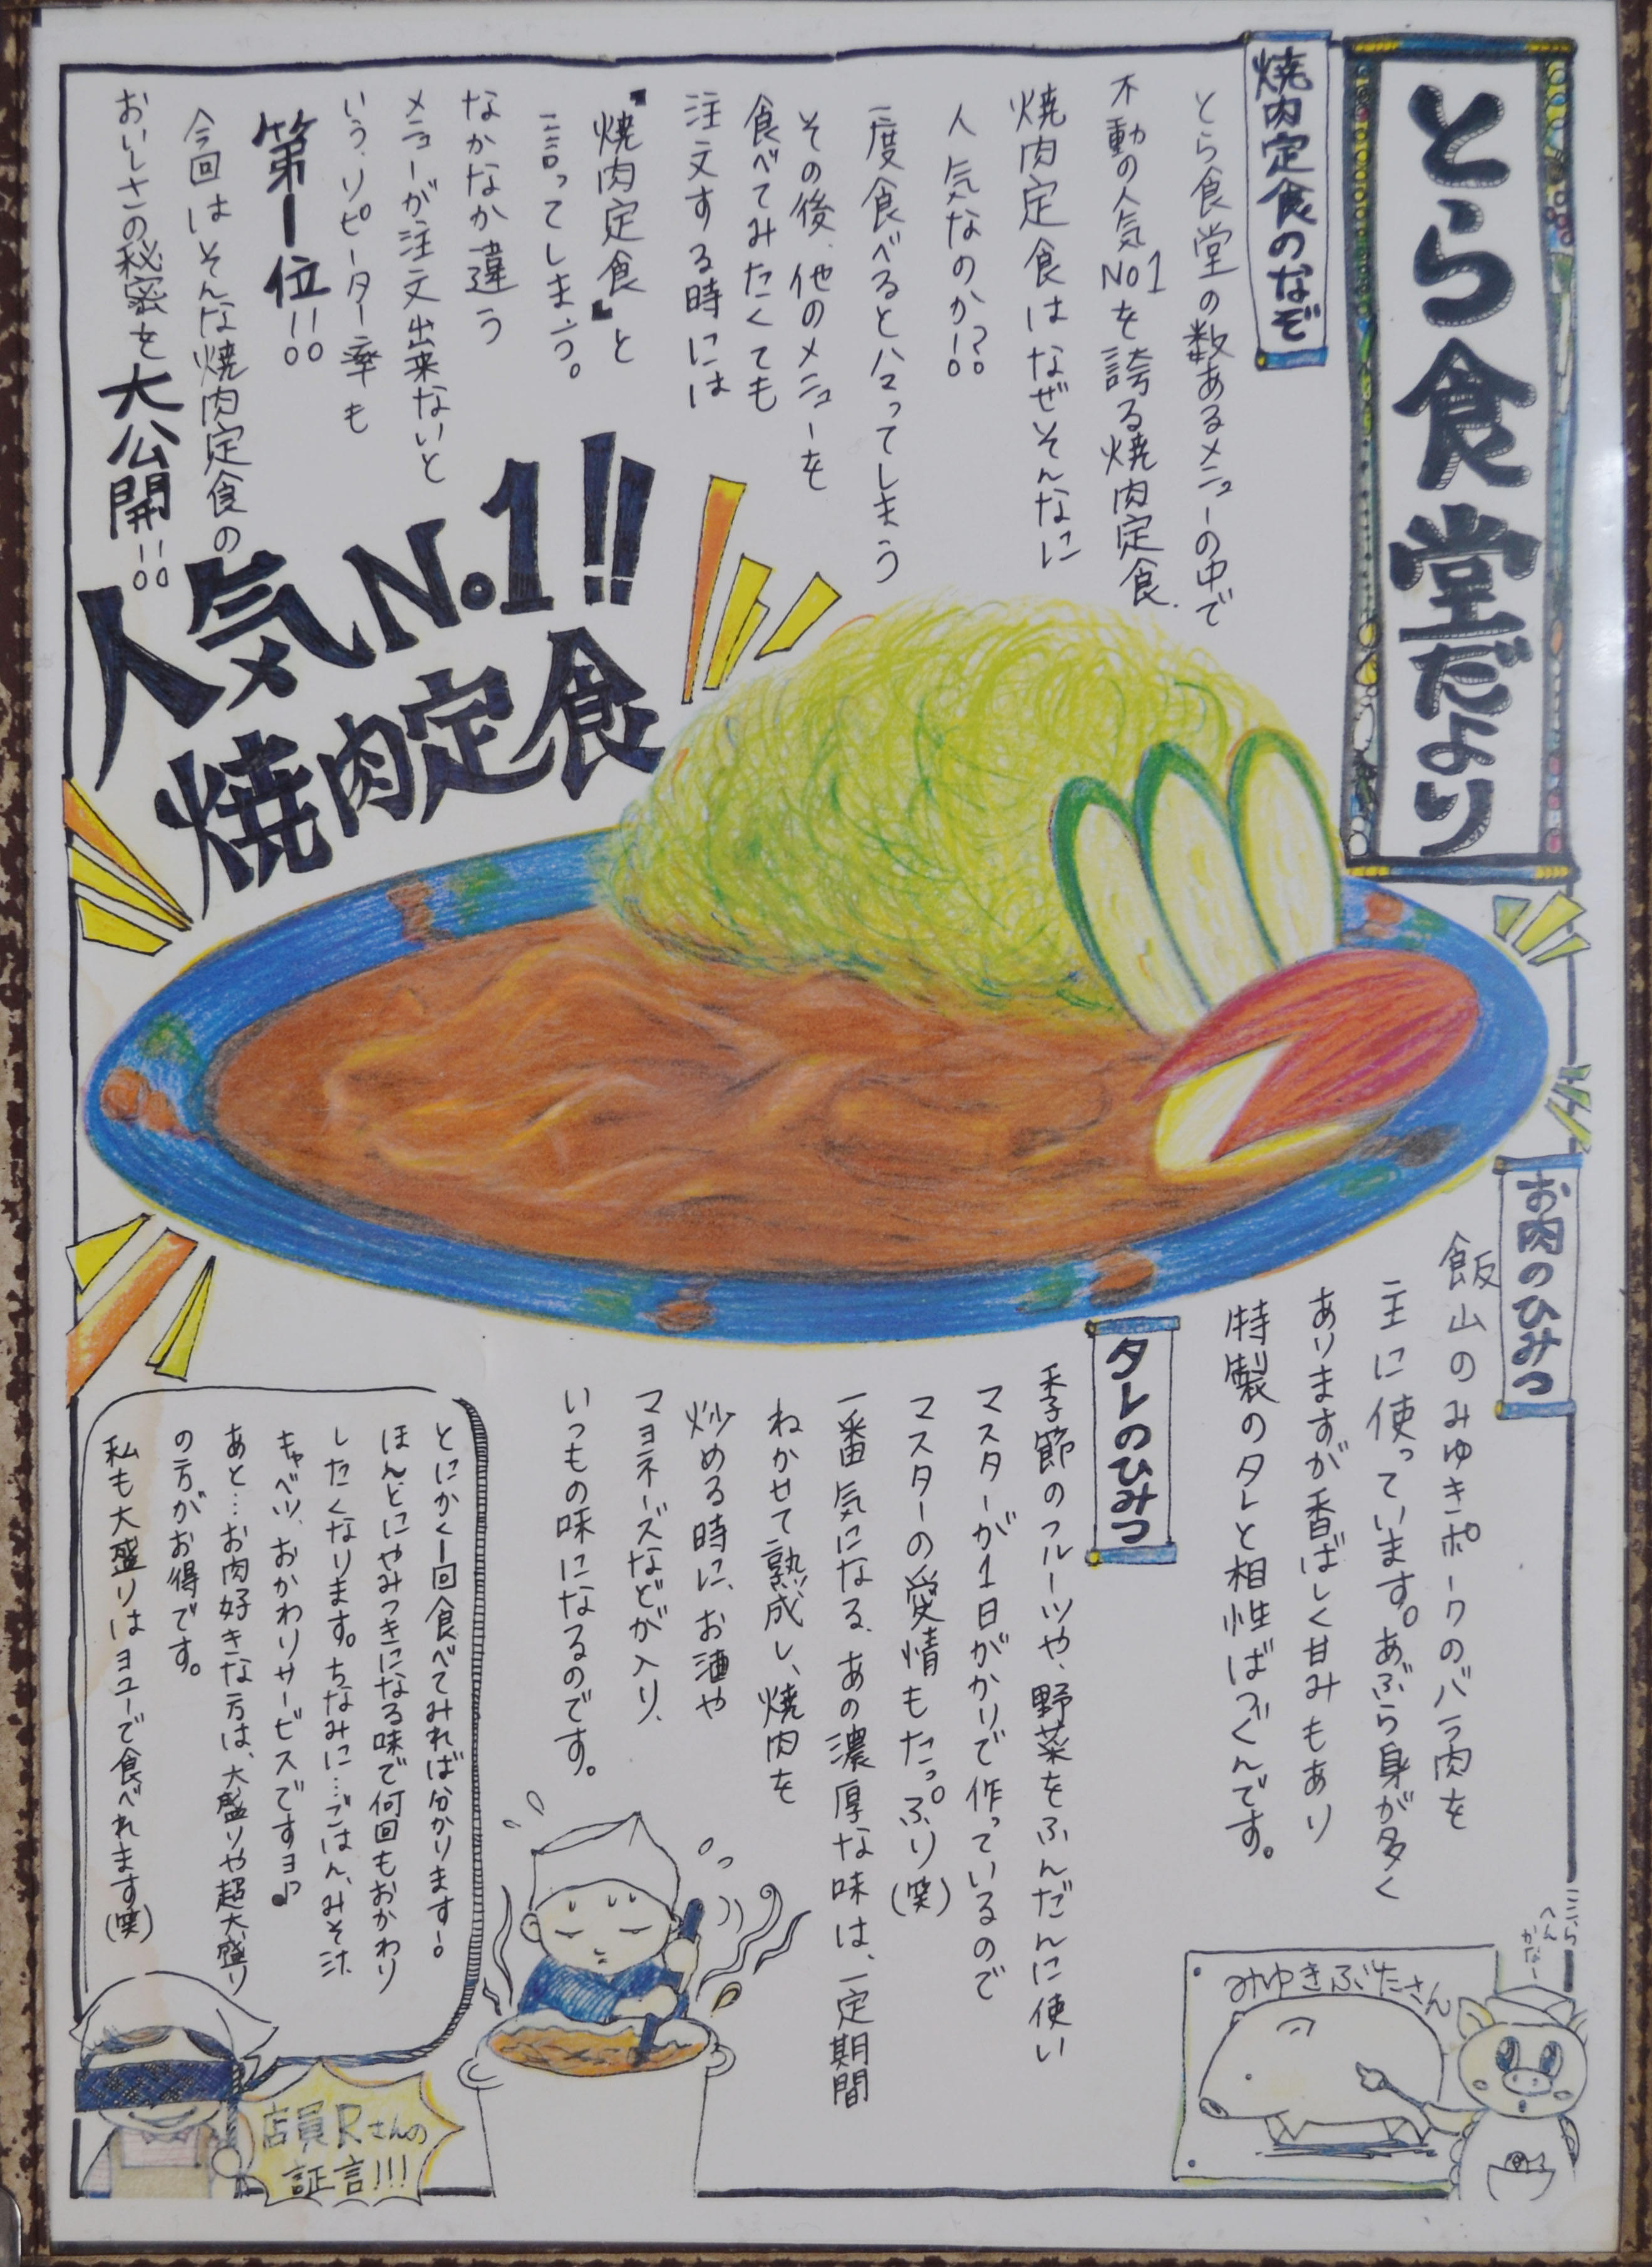 とら食堂だより
焼肉定食のなぞ
とら食堂の数あるメニューの中で
不動の人気No1を誇る焼肉定食、
焼肉定食はなぜそんなに
人気なのか!?
一度食べるとハマってしまう
その後、他のメニューを
食べてみたくても
注文する時には
『焼肉定食』と
言ってしまう。
なかなか違う
メニューが注文出来ないと
いう、リピーター率も
第一位!!
今回はそんな焼肉定食の
おいしさの秘密を大公開!!
人気No.1!!
焼肉定食
お肉のひみつ
飯山のみゆきポークのバラ肉を
主に使っています。あぶら身が多く
ありますが香ばしく甘みもあり
特製のタレと相性ばつぐんです。
タレのひみつ
季節のフルーツや、野菜をふんだんに使い
マスターが1日がかりで作っているので
マスターの愛情もたっぷり(笑)
一番気になる、あの濃厚な味は、一定期間
ねかせて熟成し、焼肉を
炒める時に、お酒や
マヨネーズなどが入り、
いつもの味になるのです。
とにかく一回食べてみれば分かります!
ほんとにやみつきになる味で何回もおかわり
したくなります。ちなみに…ごはん、みそ汁
キャベツ、おかわりサービスですョ♪
あと…お肉好きな方は、大盛りや超大盛り
の方がお得です。
私も大盛りはヨユーで食べれます(笑)
店員Rさんの
証言!!!
みゆきぶたさん
ここら
へん
かなー